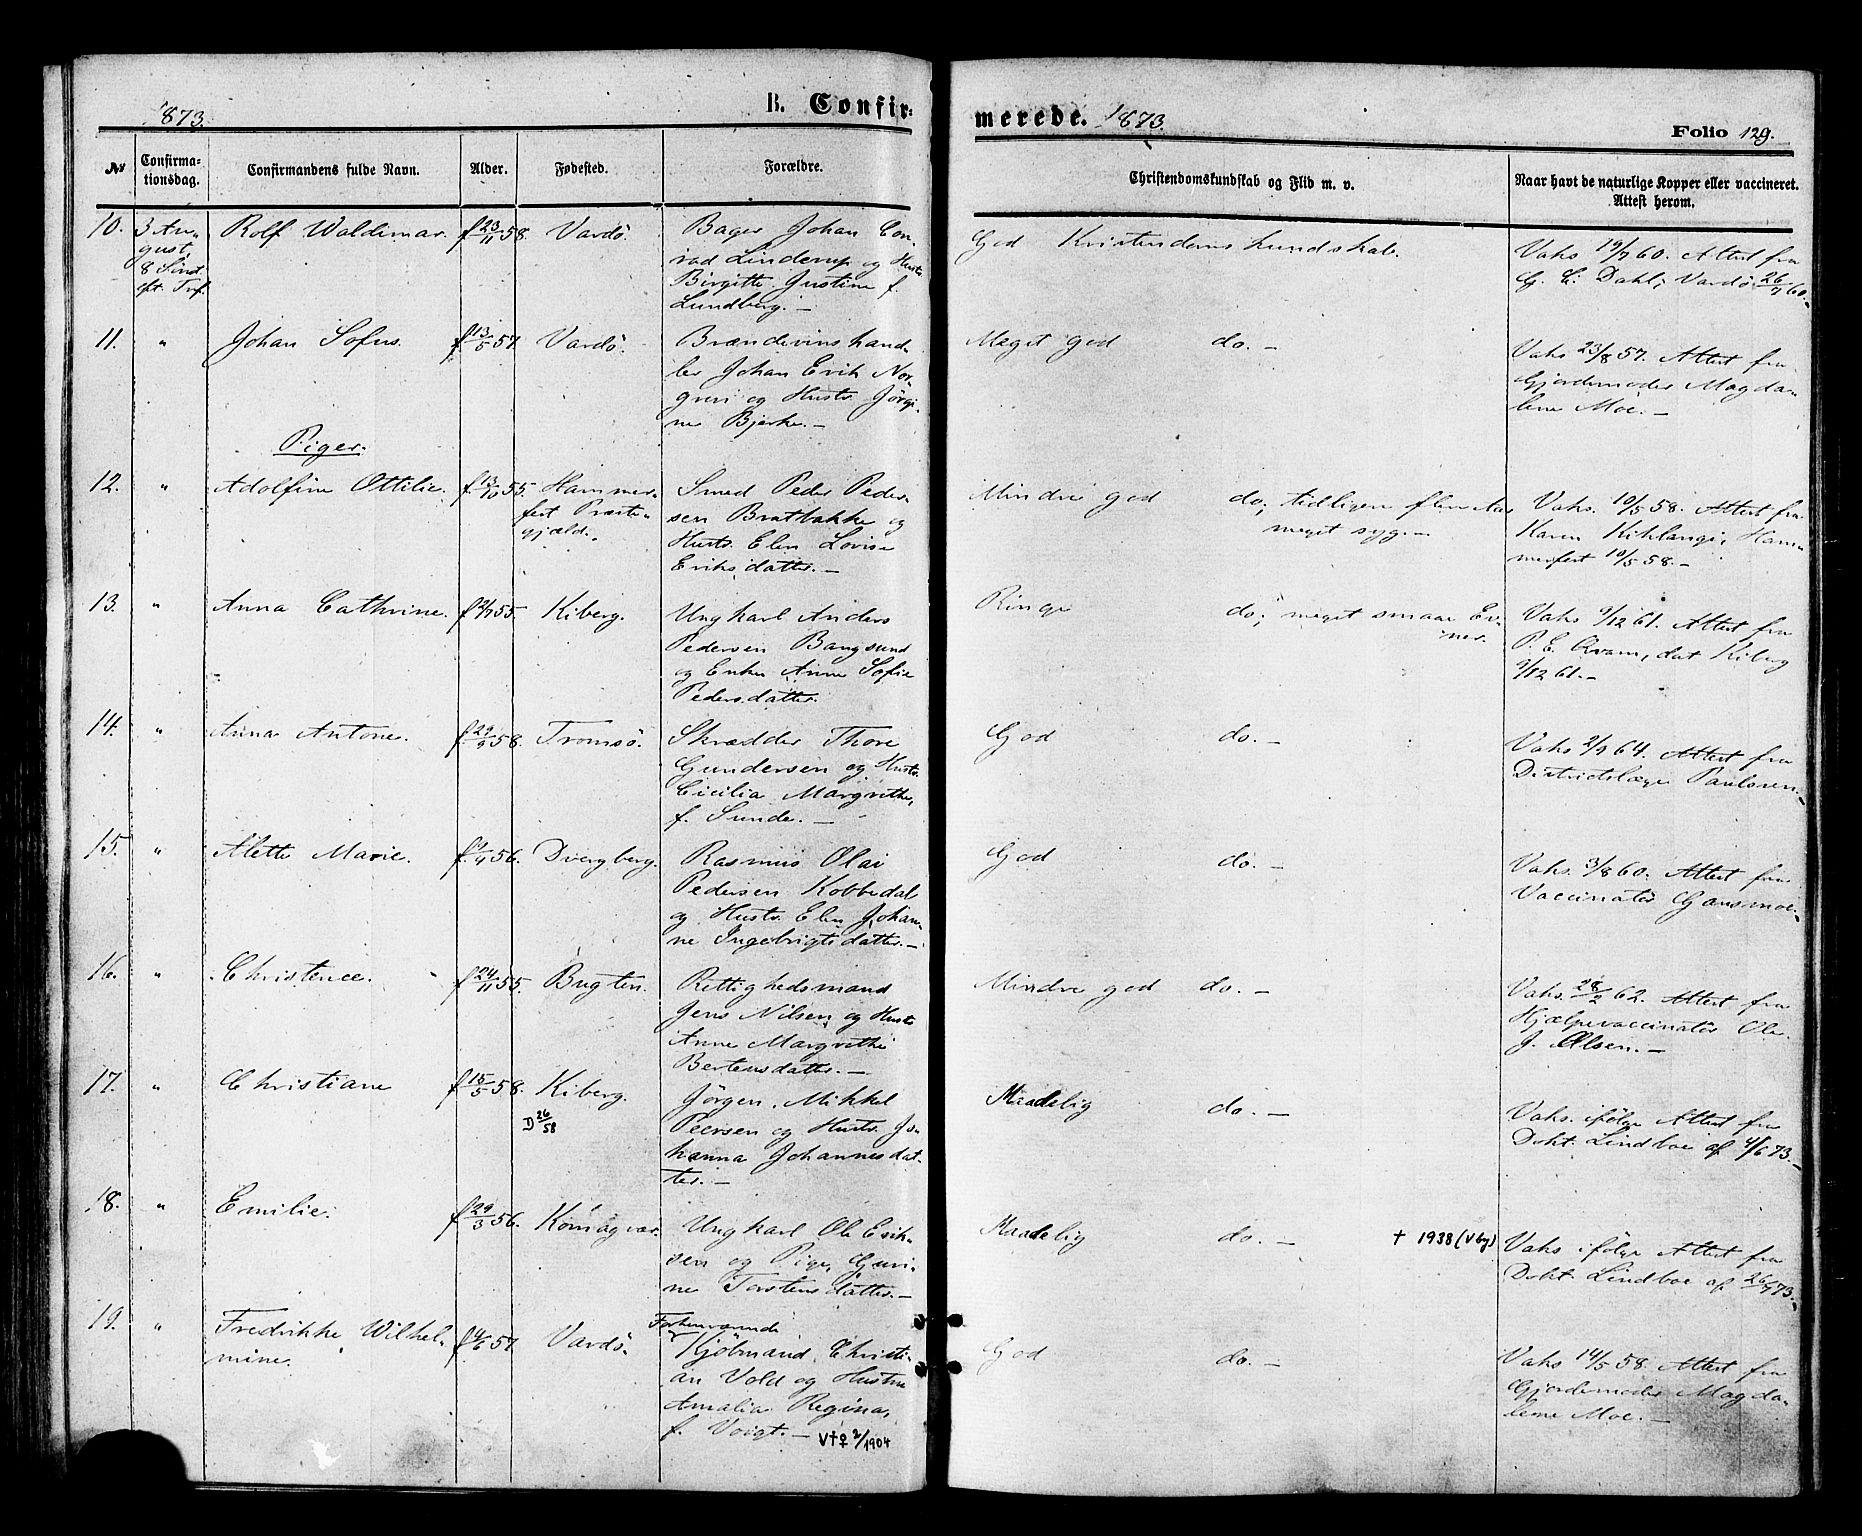 1873.
B. Confir-
merede. 1873.
Folio 129.
№
Confirma-
tionsdag.
Confirmandens fulde Navn.
Alder.
Fødested.
Forældre.
Christendomskundskab og Flid m. v.
Naar havt de naturlige Kopper eller vaccineret.
Attest herom.
10.
3 Au-
gust,
8 Sønd.
eft. Tref.
Rolf Waldimar.
f 23/11 58.
Vardö.
Bager Johan Con-
rad Linderup og Hustr
Birgitte Justine f.
Lundberg. —
God Kristendomskundskab.
Vaks 19/7 60. Attest fra
G. C. Dahl, Vardö 26/7 60.
11.
"
Johan Sofus.
f 13/5 57.
Vardö.
Brændevinshand-
ler Johan Erik Nor-
gren og Hustr. Jörgi-
ne Bjerke. —
Meget god do. —
Vaks 23/8 57. Attest fra
Gjordemoder Magda-
lene Moe. —
Piger.
12.
"
Adolfine Ottilie.
f. 13/10 55.
Hammer-
fest Præste-
gjæld.
Smed Peder Peder-
sen Bratbakke og
Hustr. Elen Lovise
Eriksdatter. —
Mindre god do; tidligere
meget syg. —
Vaks. 10/5 58. Attest fra
Karen Kiklange, Ham-
merfest 10/5 58. —
13.
"
Anna Cathrine.
55
Kiberg.
Ungkarl Anders
Pedersen Bangsund
og Enke Anne Sofie
Pedersdatter.
Ringe do; meget smaae Ev-
ner.
Vaks 9/12 61. Attest fra
P. E. Qvam, dat Kiberg
9/12 61. —
14.
"
Anna Antone.
f. 29/9 58.
Tromsö.
Skrædder Thore
Gundersen og Hustr.
Cicilia Margrethe,
f. Sunde. —
God do. —
Vaks 2/9 64. Attest fra
Districtslæge Paulssen.
15.
"
Alette Marie.
56.
Dvergberg.
Rasmus Olai
Pedersen Kobbedal
og Hustr. Elen Johan-
ne Ingebrigtsdatter. —
God do. —
Vaks. 3/8 60. Attest fra
Vaccinatör Gausmoe.
16.
"
Christence.
f 24/11 55.
Bugten.
Rettighedsmand
Jens Nilsen og Hustr
Anne Margrethe
Bertensdatter. —
Mindre god do. —
Vaks. 28/2 62. Attest fra
Hjælpevaccinatör Ole
J. Olsen. —
17.
"
Christiane
f 15/5 58.
Kiberg.
D 26/58
Jörgen Mikkel
Peersen og Hustr. Jo-
hanna Johannesdat-
ter. —
Maadelig do. —
Vaks. ifölge Attest fra
Dokt. Lindboe af 4/6 73. —
18.
"
Emilie.
f 29/3 56.
Komagvær.
Ungkarl Ole Erik-
sen og Pige Guri-
ne Torstensdatter. —
Maadelig do. —
† 1938 (Vby)
Vaks ifölge Attest fra
Dokt. Lindboe af 26/7 73.
19.
"
Fredrikke Wilhel-
mine.
f 4/6 57
Vardö.
Forhenværende
Kjöbmand Christi-
an Vold og Hustru
Amalia Regina,
f. Voigt. —
V†♀ 2/1904
God do. —
Vaks 14/5 58. Attest fra
Gjordemoder Magda-
lene Moe. —